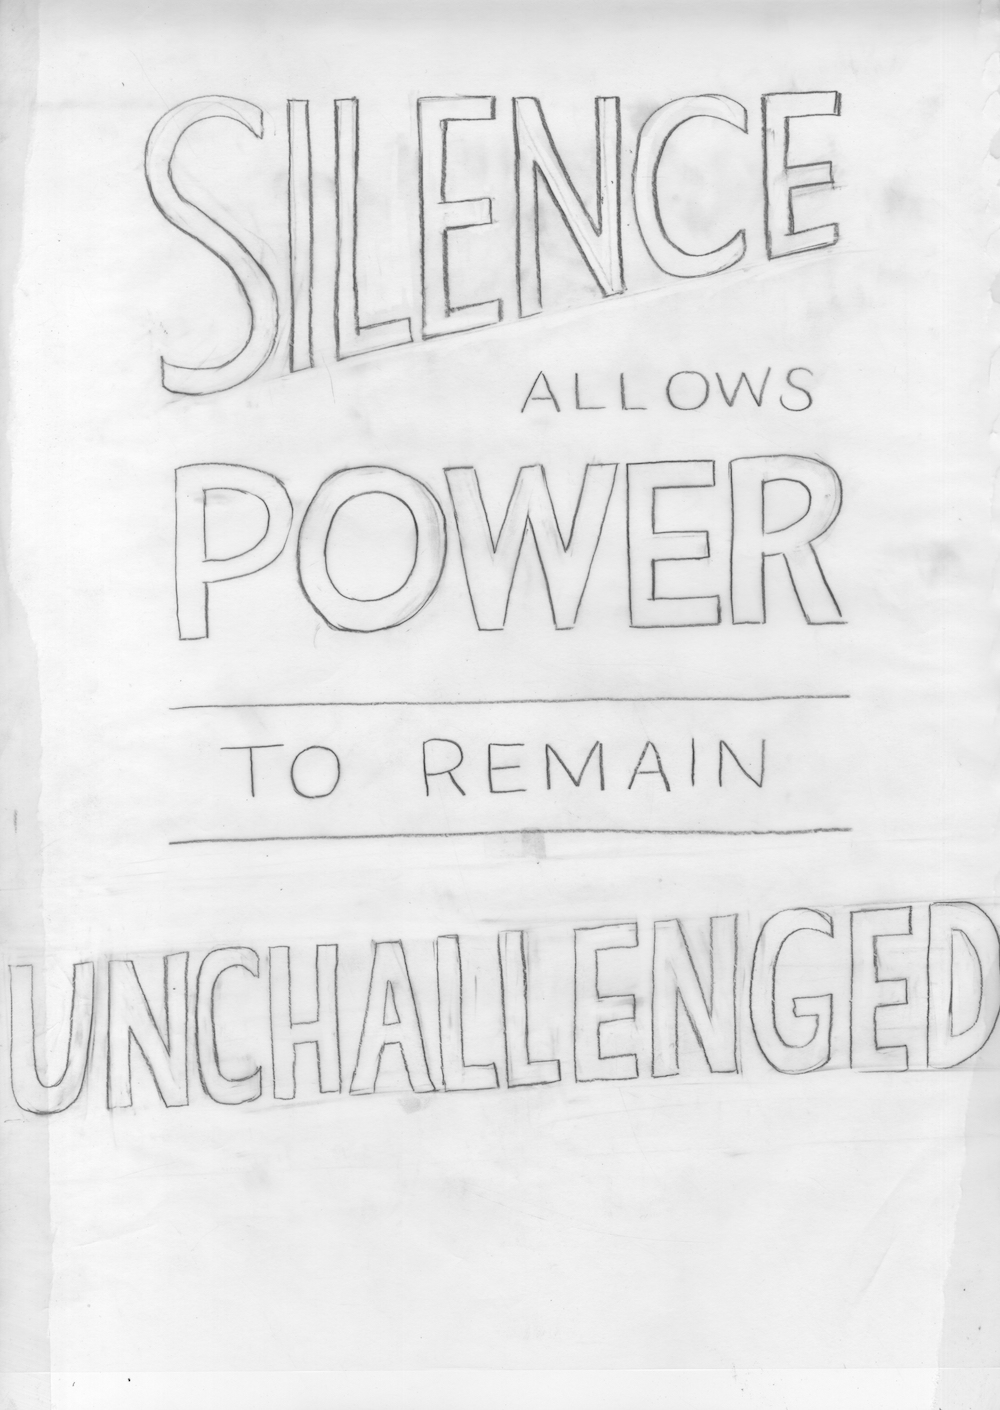 SILENCE
ALLOWS
POWER
TO REMAIN
UNCHALLENGED